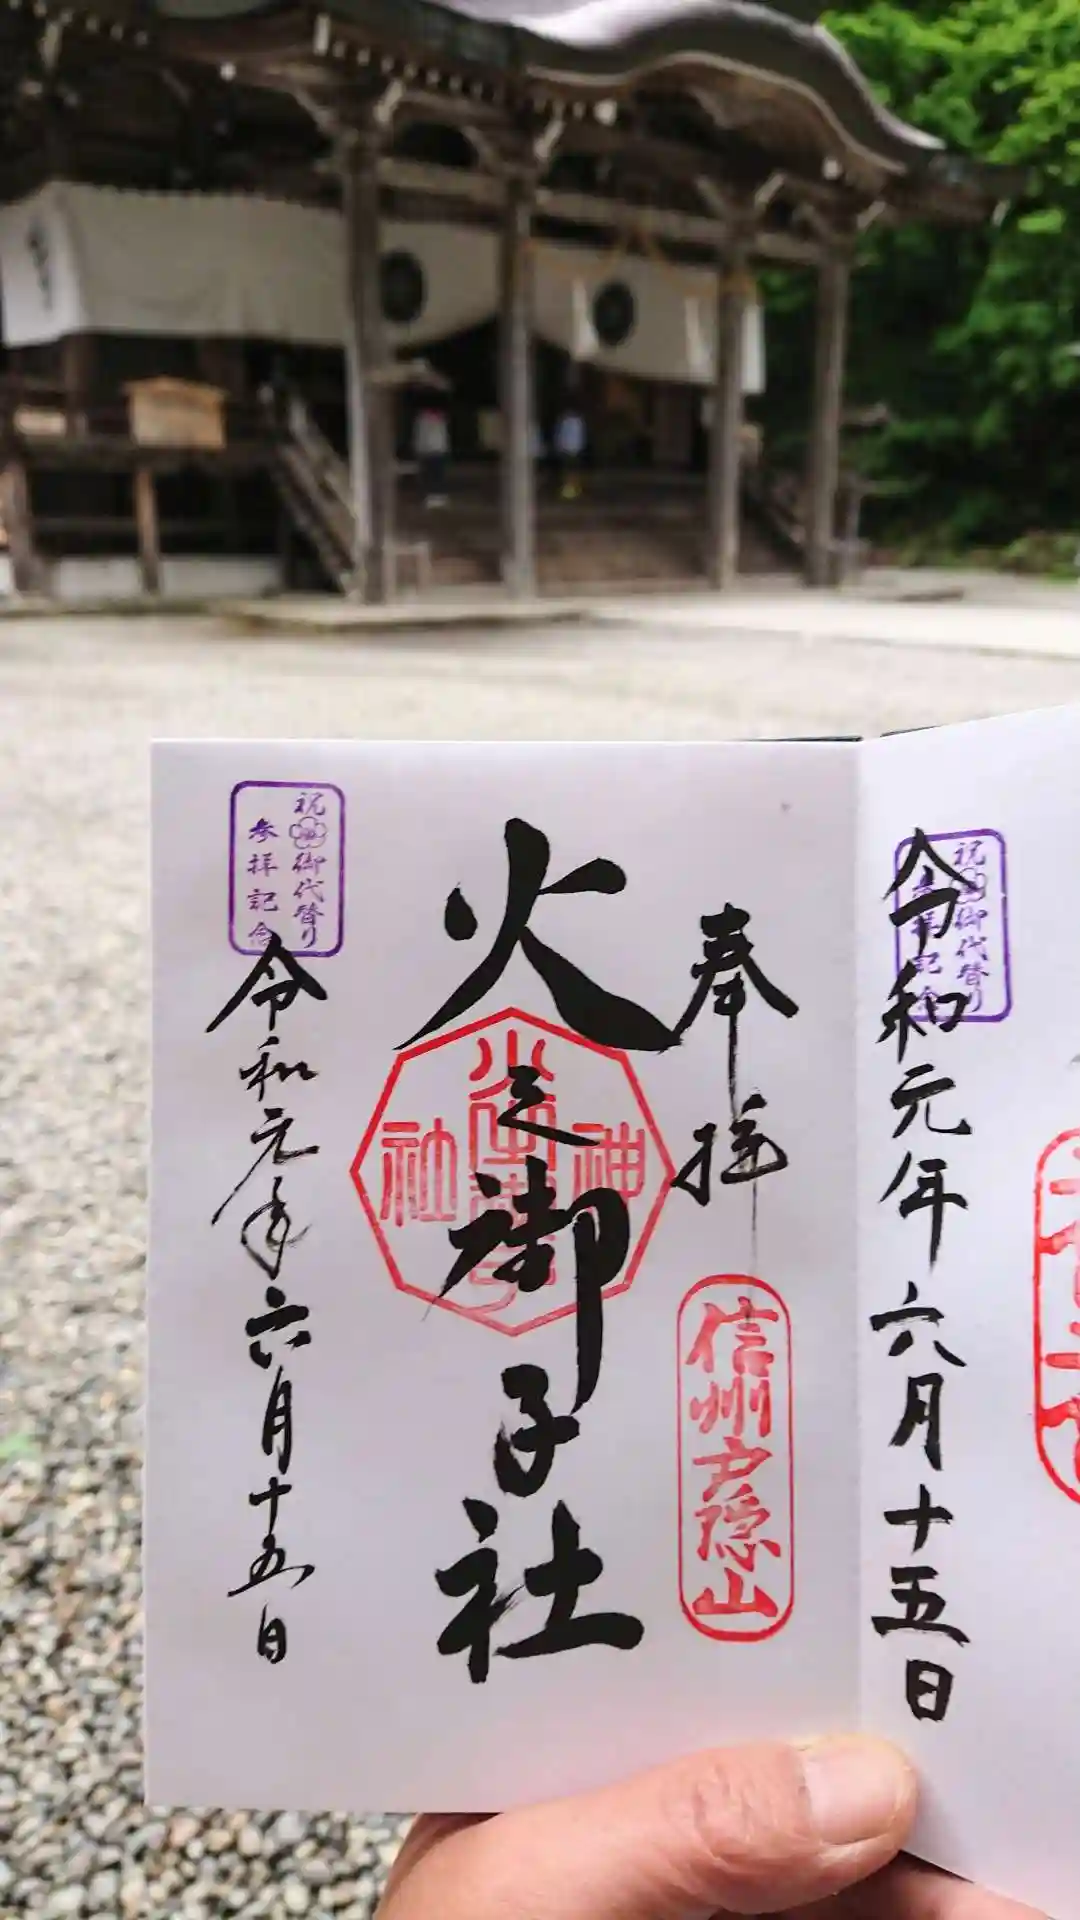 令和元年六月十五日
祝御代替り
参拝記念
奉拝
信州戸隠山
火之御子社
神
社
祝御代替り
参拝記念
令和元年六月十五日